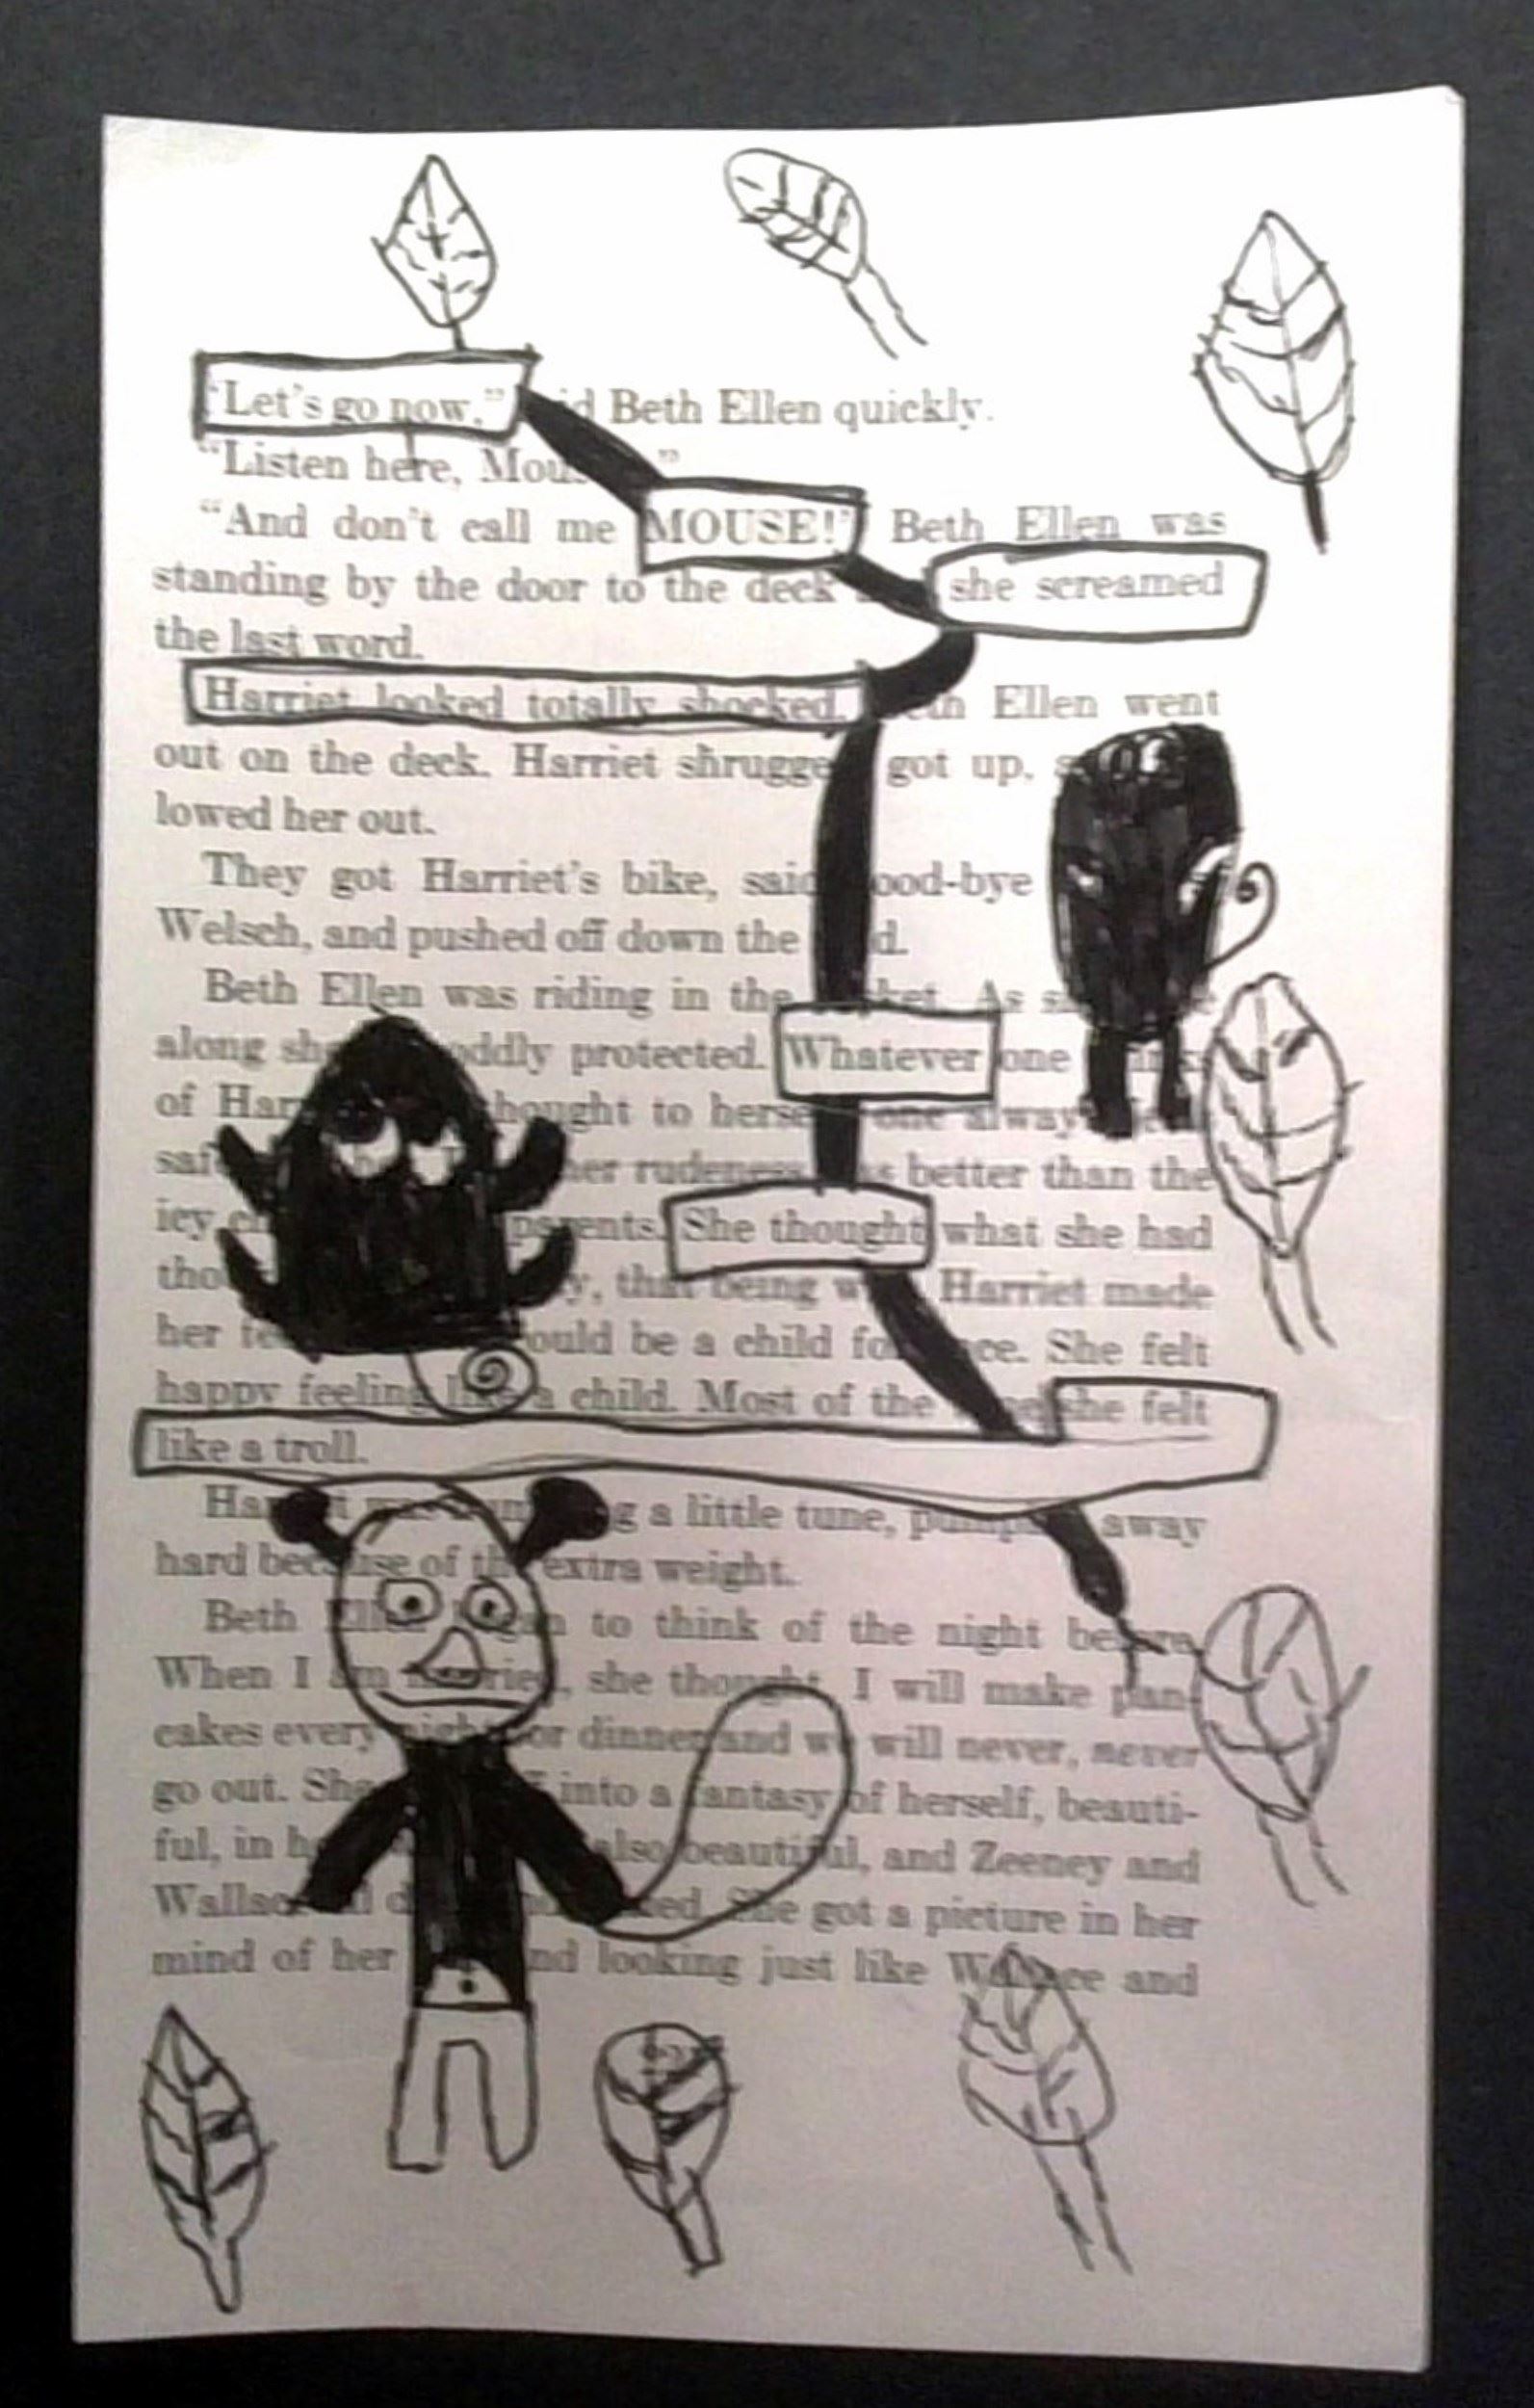 "Let's go now." Beth Ellen quickly.
"Listen here,
"And don't call me MOUSE!" Beth Ellen was
standing by the door to the deck she screamed
the last word.
Harriet looked totally shocked. Ellen went
out on the deck. Harriet got up,
lowed her out.
They got Harriet's bike,
Welsch, and pushed off down the
Beth Ellen was riding in the As
along protected. Whatever one
of to
her better than the
icy She thought what she had
being Harriet made
her be a child She felt
happy feeling a child. Most of the she felt
like a troll.
a little tune, away
hard because of extra weight.
Beth to think of the night
When I she thought, I will make pan-
cakes every dinner and will never, never
go out. into a fantasy of herself, beauti-
ful, in also beautiful, and Zeeney and
She got a picture in her
mind of her looking just like Wallace and